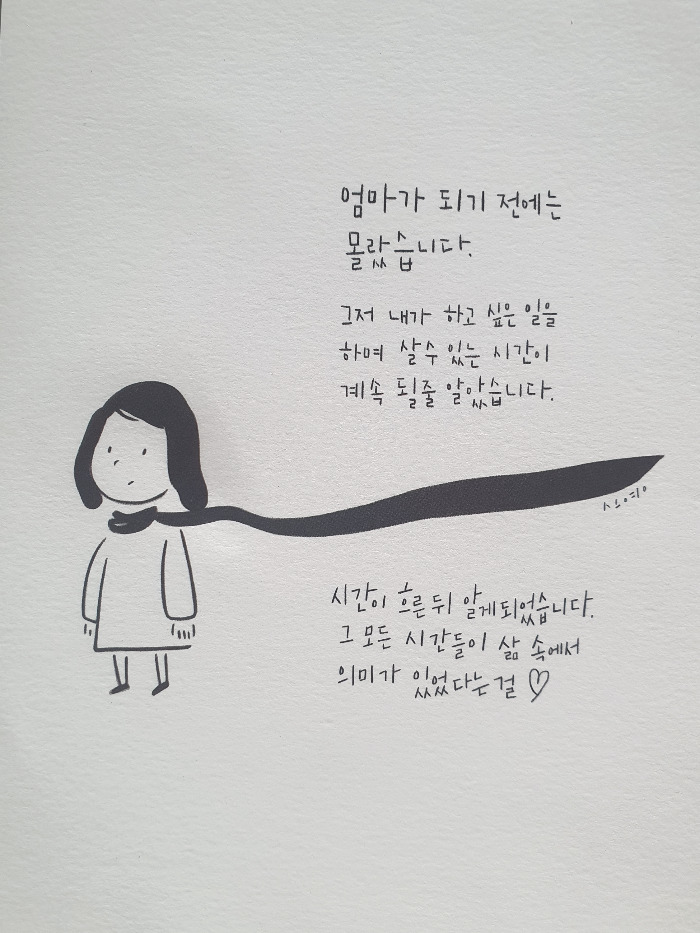 엄마가 되기 전에는
몰랐습니다.
그저 내가 하고 싶은 일을
하며 살수 있는 시간이
계속 될줄 알았습니다.
시간이 흐른 뒤 알게되었습니다.
그 모든 시간들이 삶 속에서
의미가 있었다는걸♡